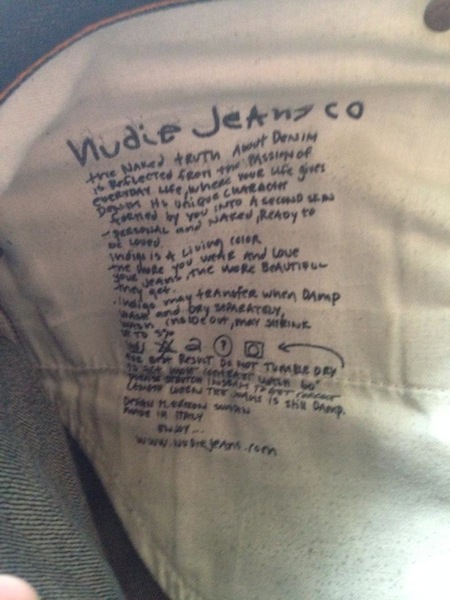 Nudie Jeans co
the Naked truth About Denim
is Reflected from the Passion of
everyday Life, where your Life gives
Denim its unique character
formed by you into a second skin
- personal and Naked, ready to
be Loved.
Indigo is a Living color
the more you wear and Love
your Jeans, the more beautiful
they get.
. Indigo may transfer when Damp
wash and dry separately,
wash inside out, may shrink
up to 5%
for best Result Do not tumble dry
to get most wash 60°
stretch inseam to get correct
Length when the Jeans is still Damp.
Design M. Sweden
made in Italy
enjoy...
www.nudiejeans.com